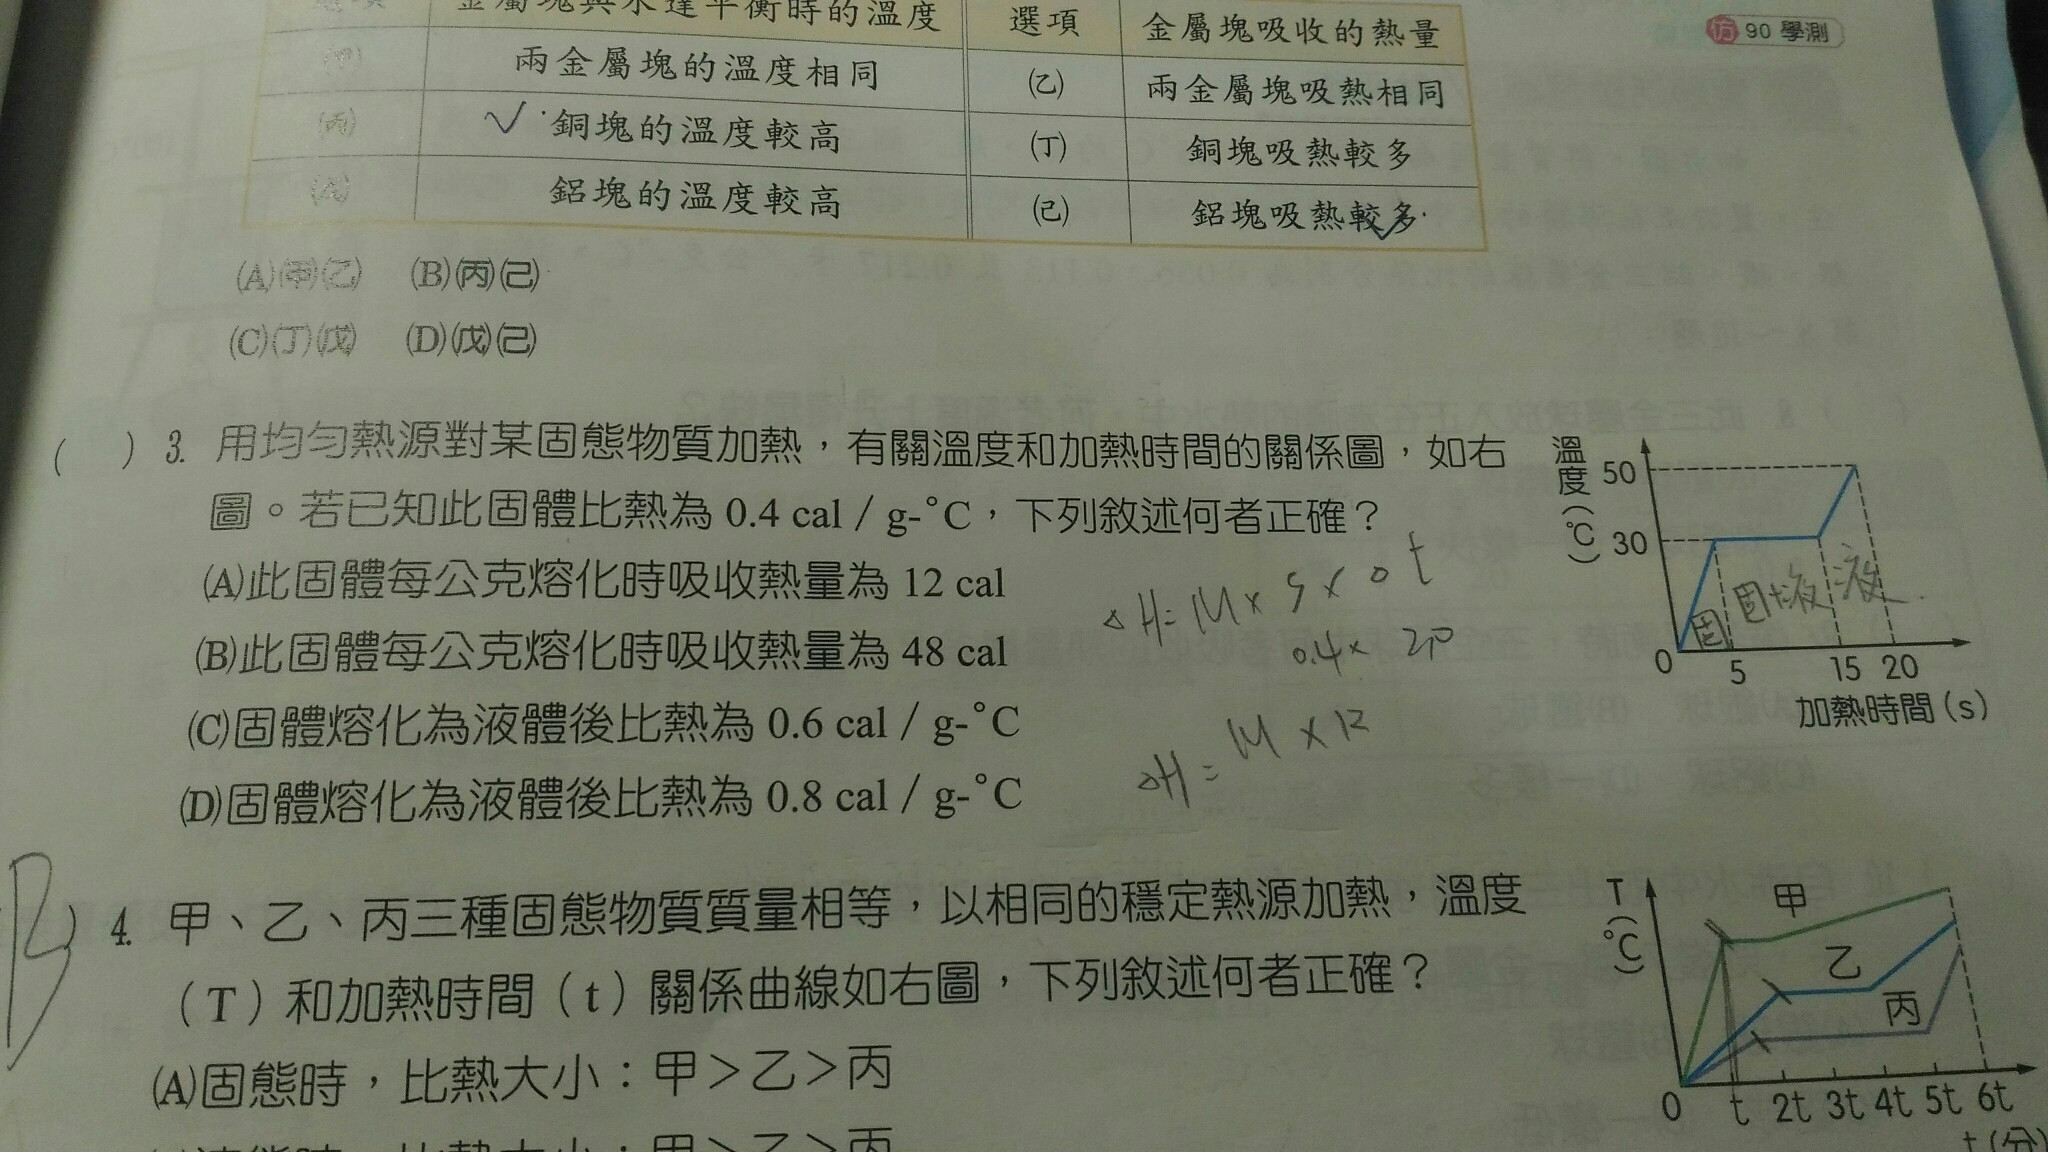 選項 金屬塊與水達平衡時的溫度 選項 金屬塊吸收的熱量
仿 90 學測
(甲) 兩金屬塊的溫度相同 (乙) 兩金屬塊吸熱相同
(丙) 銅塊的溫度較高 (丁) 銅塊吸熱較多
(戊) 鋁塊的溫度較高 (己) 鋁塊吸熱較多
(A)(甲)(乙) (B)(丙)(己)
(C)(丁)(戊) (D)(戊)(己)
( ) 3. 用均勻熱源對某固態物質加熱，有關溫度和加熱時間的關係圖，如右
圖。若已知此固體比熱為 0.4 cal / g-°C，下列敘述何者正確？
(A)此固體每公克熔化時吸收熱量為 12 cal
(B)此固體每公克熔化時吸收熱量為 48 cal
(C)固體熔化為液體後比熱為 0.6 cal / g-°C
(D)固體熔化為液體後比熱為 0.8 cal / g-°C
△H=M×S×△t
0.4×
△H=M×12
溫度(°C)
50
30
固 固+液 液
0 5 15 20
加熱時間(s)
B) 4. 甲、乙、丙三種固態物質質量相等，以相同的穩定熱源加熱，溫度
（T）和加熱時間（t）關係曲線如右圖，下列敘述何者正確？
(A)固態時，比熱大小：甲＞乙＞丙
比熱大小：甲＞乙＞丙
T(°C)
甲
乙
丙
0 t 2t 3t 4t 5t 6t
t(分)